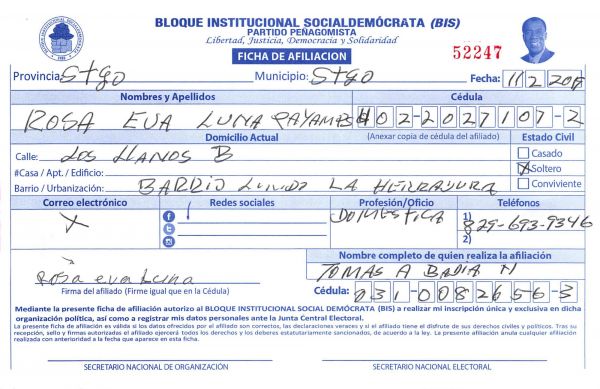 BLOQUE INSTITUCIONAL SOCIALDEMÓCRATA (BIS)
PARTIDO PEÑAGOMISTA
Libertad, Justicia, Democracia y Solidaridad
FICHA DE AFILIACION
52247
Provincia: Stgo Municipio: Stgo Fecha: 11/2
Nombres y Apellidos Cédula
ROSA EVA LUNA PAYAMPS 402-2027107-2
Domicilio Actual (Anexar copia de cédula del afiliado) Estado Civil
Calle: LOS LLANOS B Casado
#Casa / Apt. / Edificio: X Soltero
Barrio / Urbanización: BARRIO LINDO LA HERRADURA Conviviente
Correo electrónico Redes sociales Profesión/Oficio Teléfonos
X DOMESTICA 1) 829-693-9346
2)
Nombre completo de quien realiza la afiliación
Rosa eva Luna TOMAS A BADIA N
Firma del afiliado (Firme igual que en la Cédula) Cédula: 031-0082656-3
Mediante la presente ficha de afiliación autorizo al BLOQUE INSTITUCIONAL SOCIAL DEMÓCRATA (BIS) a realizar mi inscripción única y exclusiva en dicha
organización política, así como a registrar mis datos personales ante la Junta Central Electoral.
La presente ficha de afiliación es válida si los datos ofrecidos por el afiliado son correctos, las declaraciones veraces y si el afiliado tiene el disfrute de sus derechos civiles y políticos. Tras su
recepción, sello y firma autorizados el afiliado ejercerá todos los derechos y los deberes estatutariamente sancionados, de acuerdo a la ley. La presente afiliación anula cualquier afiliación
realizada con anterioridad a la fecha que aparece en esta ficha.
SECRETARIO NACIONAL DE ORGANIZACIÓN SECRETARIO NACIONAL ELECTORAL